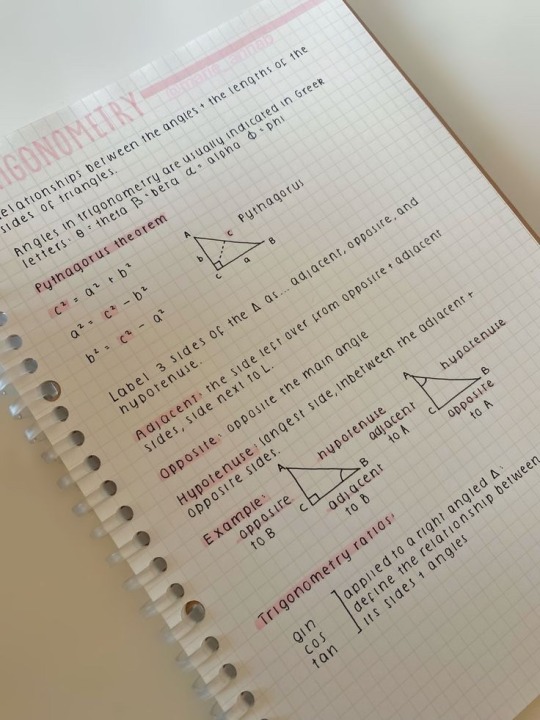 TRIGONOMETRY
relationships between the angles + the lengths of the
sides of triangles.
Angles in trigonometry are usually indicated in Greek
letters: θ = theta β = beta α = alpha Φ = phi
Pythagorus theorem
c² = a² + b²
a² = c² - b²
b² = c² - a²
A c B
b a
C
Pythagorus
Label 3 sides of the Δ as... adjacent, opposite, and
hypotenuse.
Adjacent: the side left over from opposite + adjacent
sides, side next to L.
Opposite: opposite the main angle
Hypotenuse: longest side, inbetween the adjacent +
opposite sides.
Example:
A B
C
hypotenuse
opposite
to B
adjacent
to B
A B
C
hypotenuse
adjacent
to A
opposite
to A
Trigonometry ratios:
sin
cos
tan
applied to a right angled Δ:
define the relationship between
its sides + angles